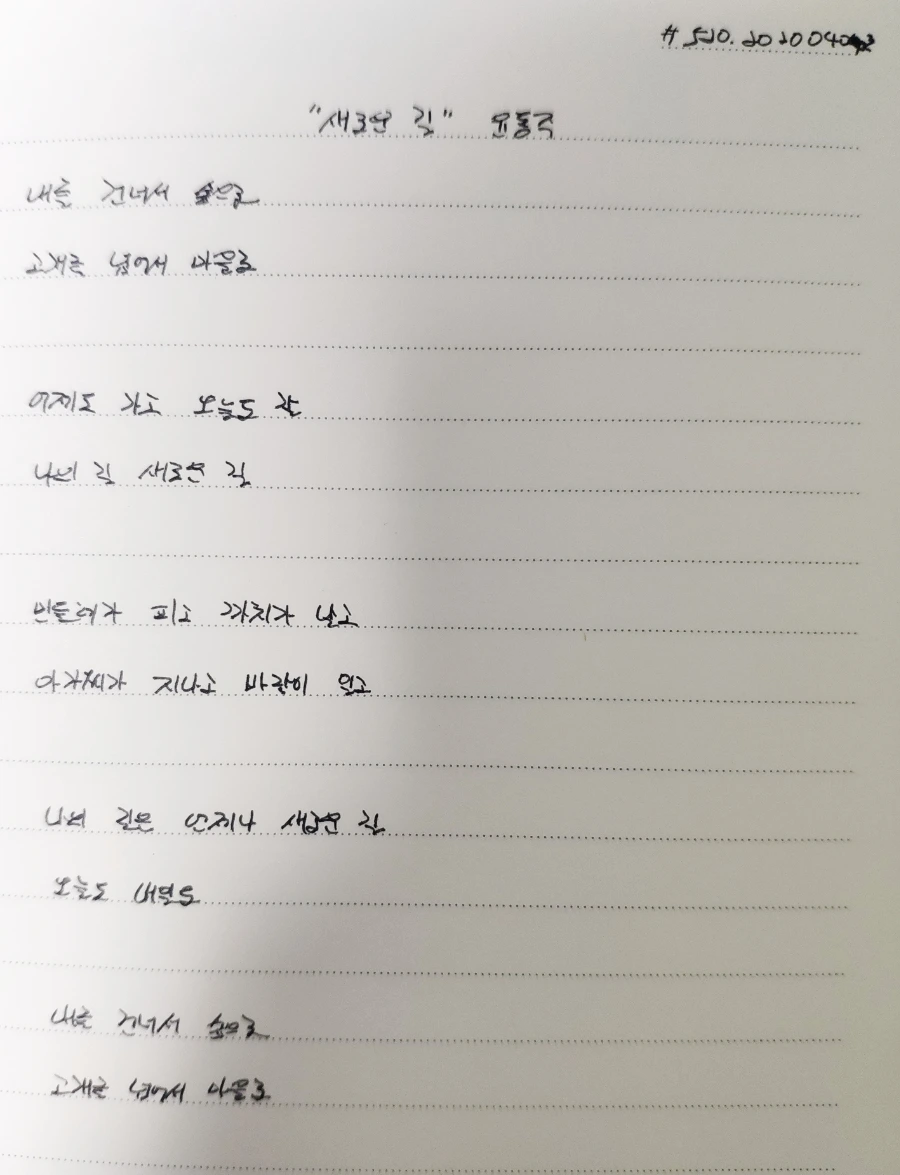 #520. 202004
"새로운 길" 윤동주
내를 건너서 숲으로
고개를 넘어서 마을로
어제도 가고 오늘도 갈
나의 길 새로운 길
민들레가 피고 까치가 날고
아가씨가 지나고 바람이 일고
나의 길은 언제나 새로운 길
오늘도 내일도
내를 건너서 숲으로
고개를 넘어서 마을로